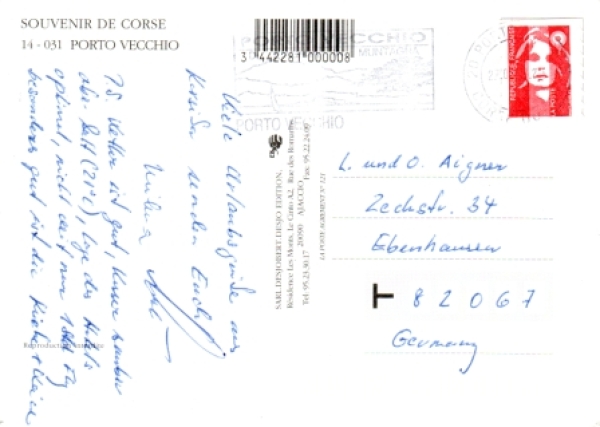 SOUVENIR DE CORSE
14 - 031 PORTO VECCHIO
3 442281 000008
PORTO VECCHIO
PORTO VECCHIO
REPUBLIQUE FRANÇAISE
LA POSTE
Viele Urlaubsgrüße aus
Korsika senden Euch
P.S. Wetter ist gut, Wasser
aber kalt (21°C), Lage des Hotels
optimal, nicht weit nur
besonders gut ist die Küche
Reproduction interdite
SARL DESJOBERT DESJO EDITION,
Résidence Les Monts, Le Cinto A2, Rue des Romarins
20090 AJACCIO
Tel: 95.23.30.17 Fax: 95.22.24.09
LA POSTE AGREMENT N° 121
L. und O. Aigner
Zechstr. 34
Ebenhausen
T 82067
Germany